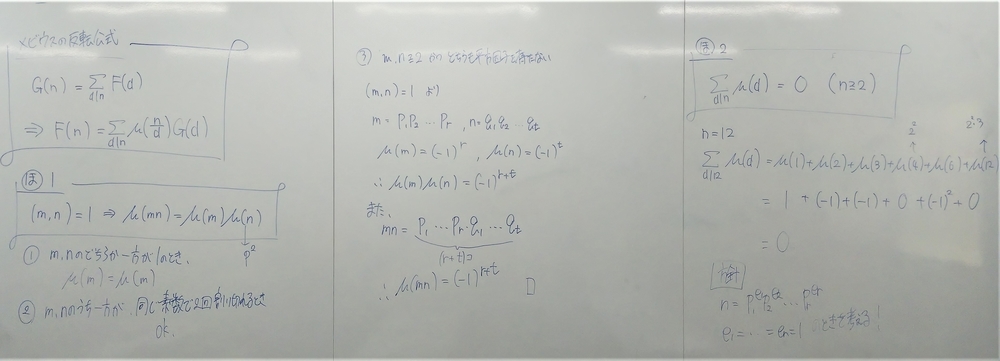 メビウスの反転公式
G(n) = Σ_{d|n} F(d)
⇒ F(n) = Σ_{d|n} μ(n/d) G(d)
ほ 1
(m,n)=1 ⇒ μ(mn)=μ(m)μ(n)
p²
① m,nのどちらか一方が1のとき、
μ(m)=μ(m)
② m,nのうち一方が、同じ素数で2回割り切れるとき
ok.
③ m,n≧2 かつ どちらも平方因子を持たない
(m,n)=1 より
m=p₁p₂…pr , n=q₁q₂…qt
μ(m)=(-1)^r , μ(n)=(-1)^t
∴ μ(m)μ(n)=(-1)^{r+t}
また、
mn= p₁…pr・q₁…qt
(r+t)コ
∴ μ(mn)=(-1)^{r+t} □
ほ 2
Σ_{d|n} μ(d) = 0 (n≧2)
n=12
2² 2²・3
Σ_{d|12} μ(d) = μ(1)+μ(2)+μ(3)+μ(4)+μ(6)+μ(12)
= 1 + (-1)+(-1)+ 0 +(-1)²+ 0
= 0
n = p₁^{e₁}p₂^{e₂}…pr^{er}
e₁=…=en=1 のときを考える!